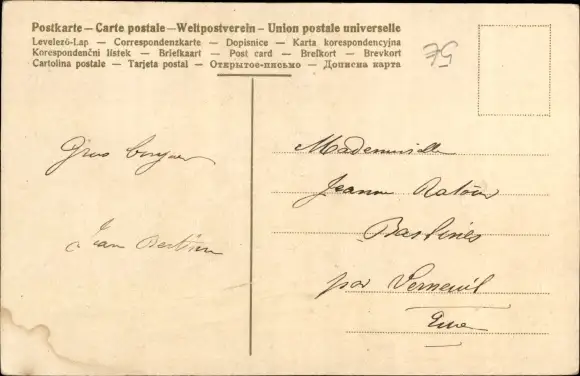 Postkarte — Carte postale — Weltpostverein — Union postale universelle
Levelező-Lap — Correspondenzkarte — Dopisnice — Karta korespondencyjna
Korespondenční lístek — Briefkaart — Post card — Brefkort — Brevkort
Cartolina postale — Tarjeta postal — Открытое-письмо — Дописна карта
Gros
Jean
Mademoiselle
Jeanne
par Verneuil
Eure